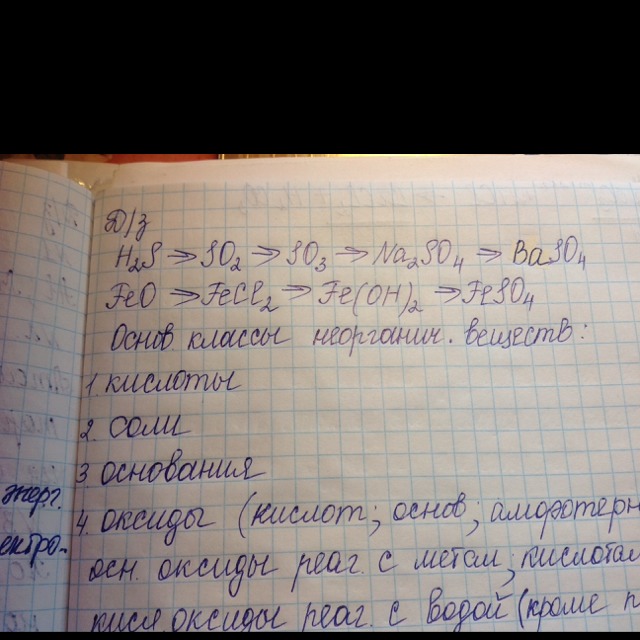 Д/з
H₂S → SO₂ → SO₃ → Na₂SO₄ → BaSO₄
FeO → FeCl₂ → Fe(OH)₂ → FeSO₄
Основ. классы неорганич. веществ:
1 кислоты
2. соли
3 основания
4. оксиды (кислот; основ; амфотерн
осн. оксиды реаг. с метал; кислотам
кисл. оксиды реаг. с водой (кроме
энерг.
ектро-